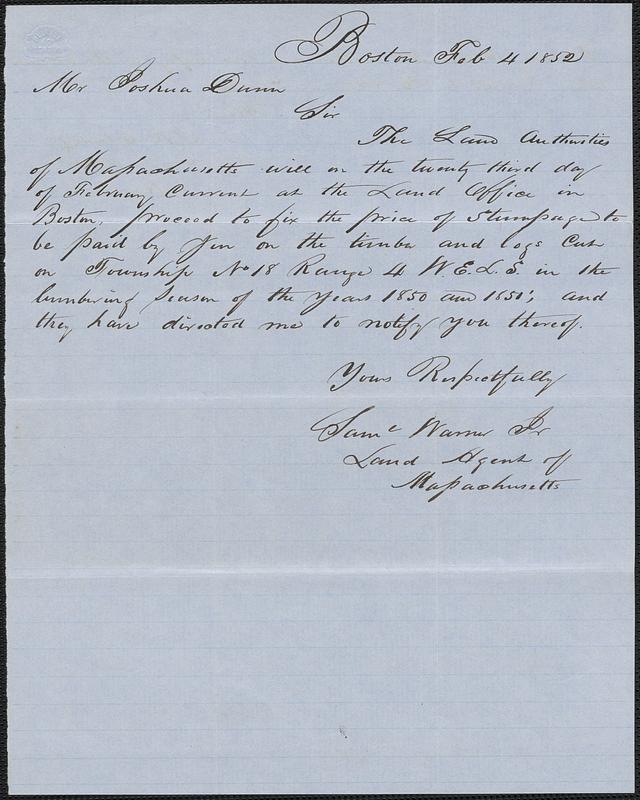 Boston Feb 4 1852
Mr Joshua Dunn
Sir
The Land Authorities
of Massachusetts will on the twenty third day
of February Current at the Land Office in
Boston, proceed to fix the price of Stumpage to
be paid by you on the timber and logs Cut
on Township No 18 Range 4 W.E.L.S. in the
lumbering Season of the years 1850 and 1851, and
they have directed me to notify you thereof.
Yours Respectfully
Saml Warner Jr
Land Agent of
Massachusetts